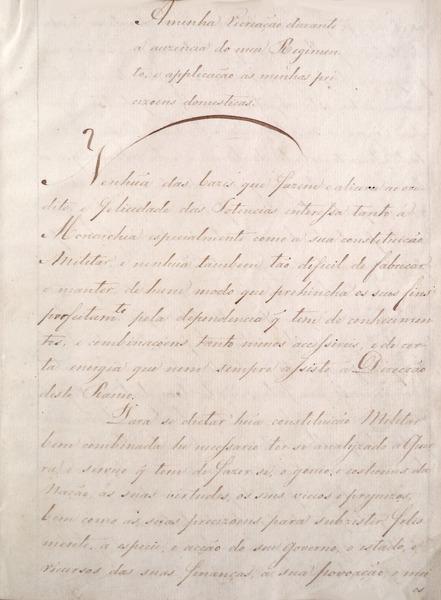 A minha creação durante
a auzencia do meu Regimen-
to, e applicação as minhas pri
zoens domesticas.
Nenhũa das bazes que fazem e alicerse ao cre
dito, e felicidade das Potencias interessa tanto a
Monarchia especialmente como a sua constetuição
Militar, e nenhũa tambem tão dificil de fabricar
e manter de hum modo que prehincha os seus fins
profeitamte pela dependencia q̃ tem de conhecimen-
tos, e combinaçoens tanto menos acessiveis, e de cer-
ta energia que nem sempre assiste á Direcção
deste Ramo.
Para se dictar hũa constituição Militar
bem combinada he necessario ter se analyzado a Guer
ra, e serviço q̃ tem de fazer se, o genio, e costumes da
Nação, as suas virtudes, os seus vicios e prejuizos,
bem como as suas precizoens para subzistir feles
mente, a especie, e acção do seu Governo, o estado, e
recursos das suas finanças, a sua povoação, e mui